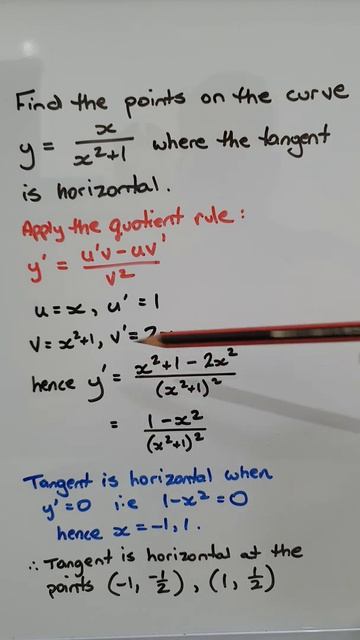 Find the points on the curve
y = x/(x²+1) where the tangent
is horizontal.
Apply the quotient rule:
y' = (u'v - uv')/v²
u = x, u' = 1
v = x²+1, v' = 2
hence y' = (x²+1 - 2x²)/(x²+1)²
= (1 - x²)/(x²+1)²
Tangent is horizontal when
y' = 0 i.e 1 - x² = 0
hence x = -1, 1.
∴ Tangent is horizontal at the
points (-1, -1/2), (1, 1/2)